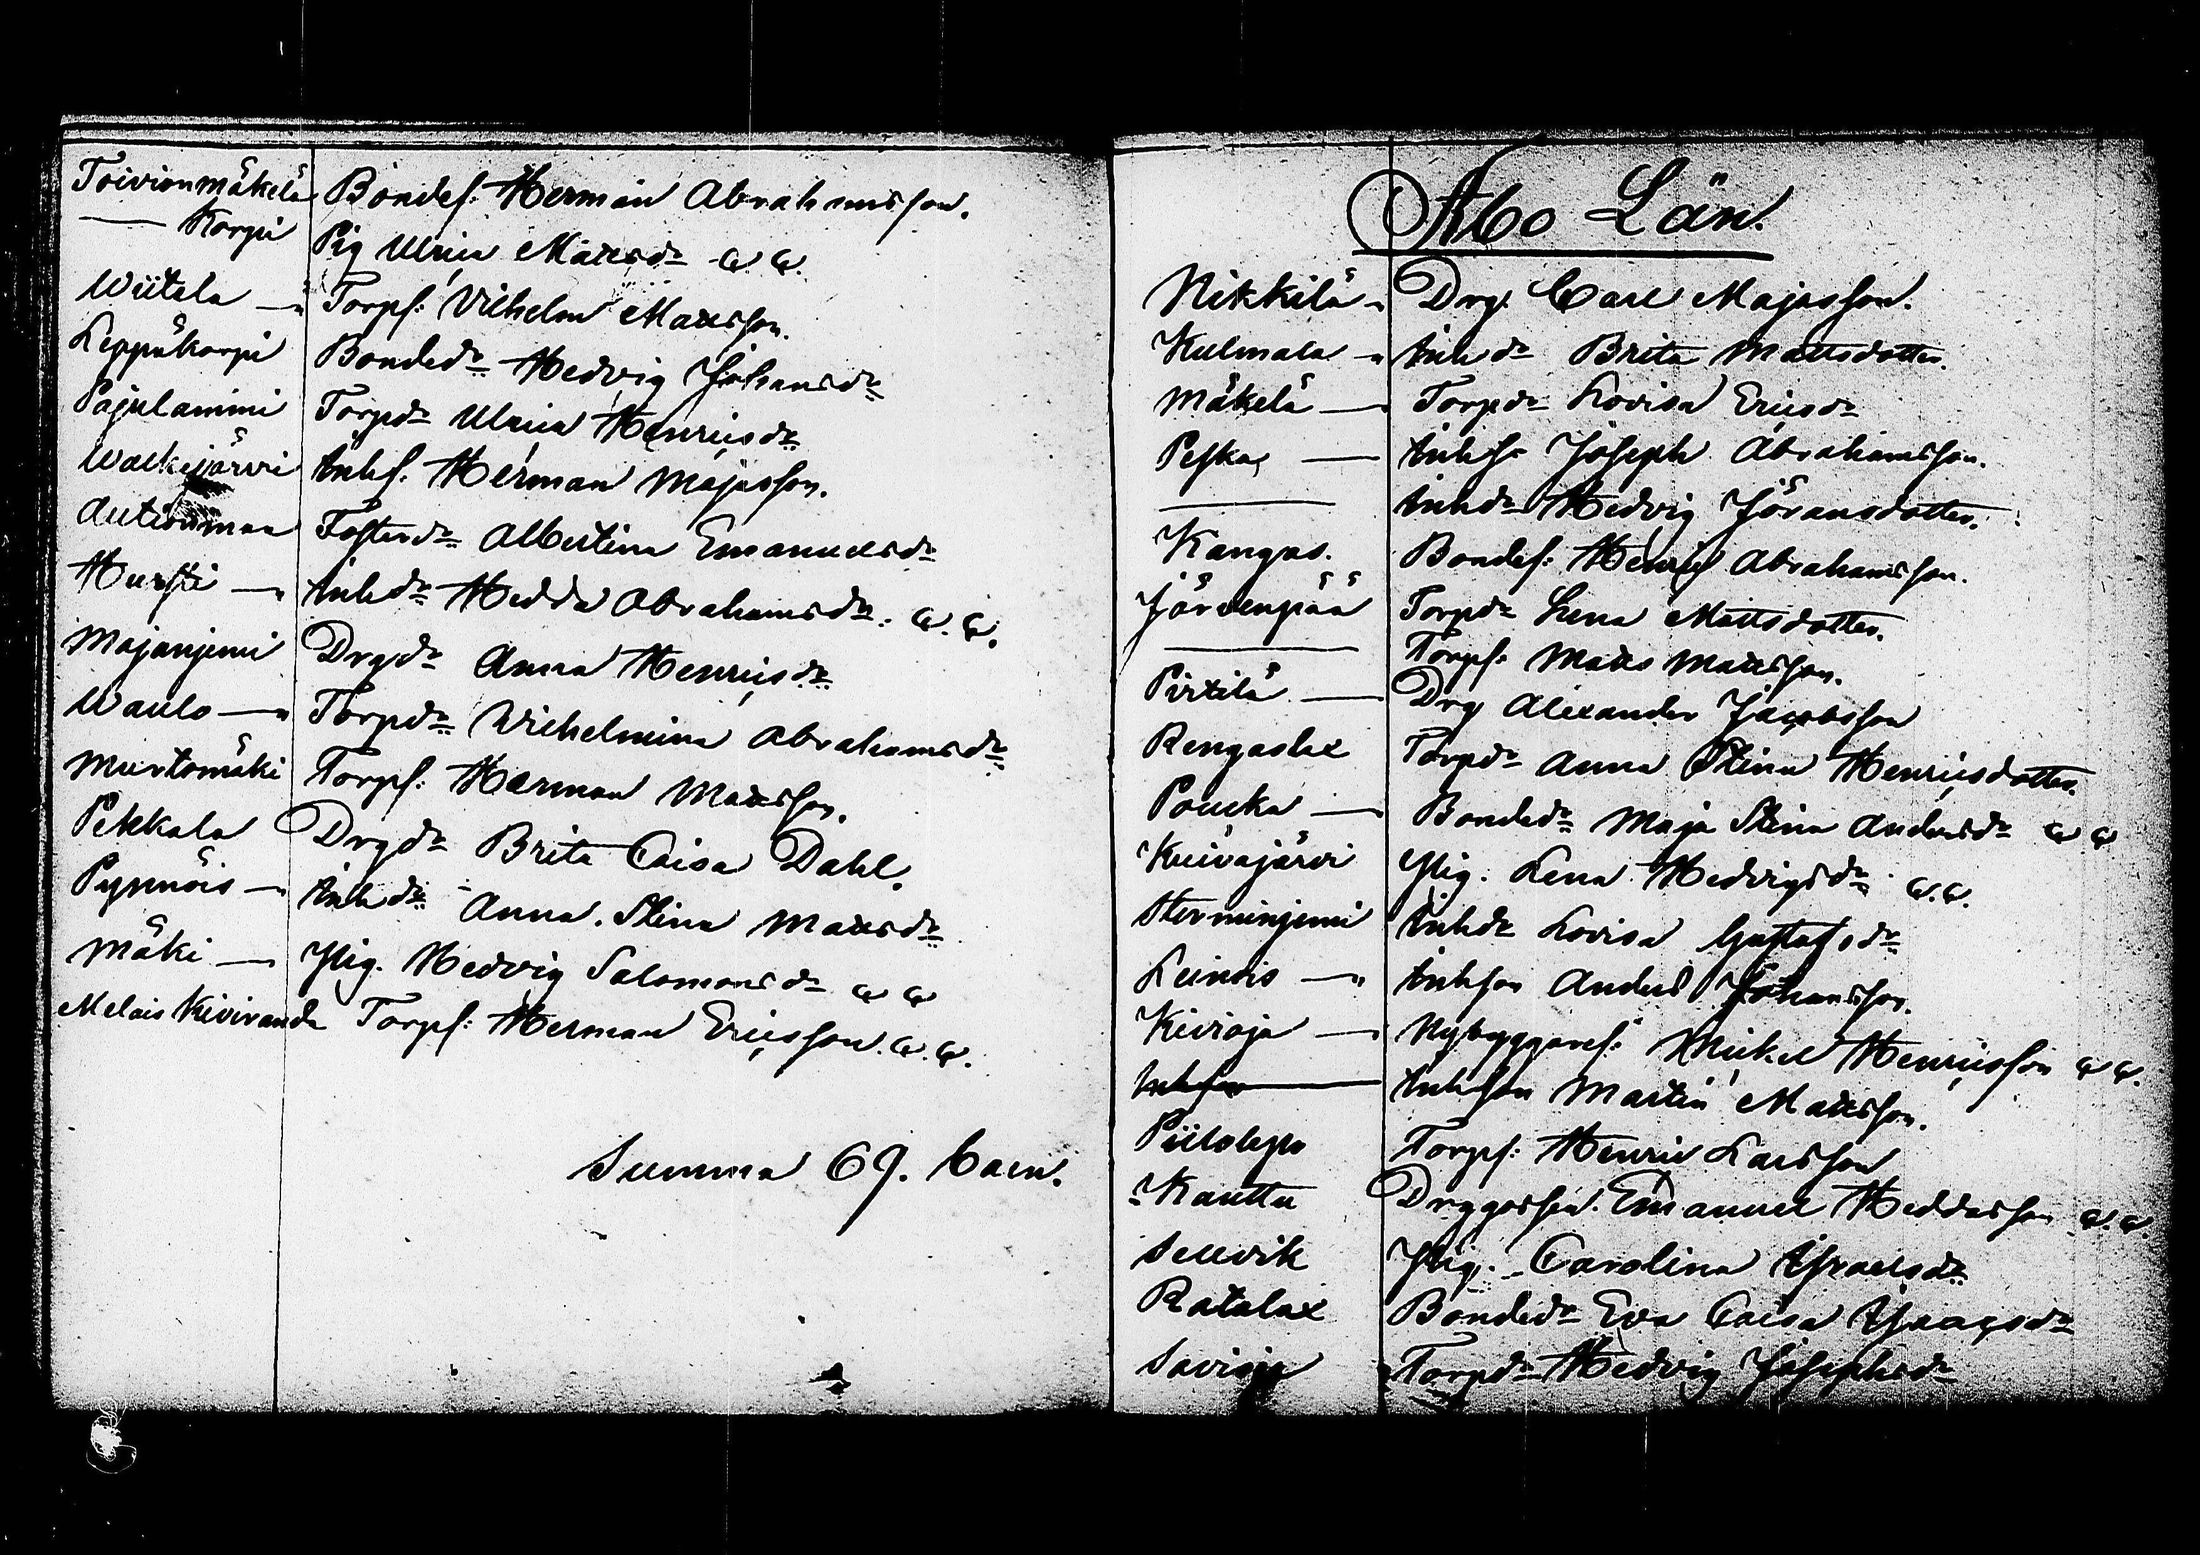 Toivionmäkelä Bondes. Herman Abrahamsson.
— Korpi Pig Ulrica Mattsdr
Wiitala — Torps. Vilhelm Mattsson.
Leppäkorpi Bondedr Hedvig Johansdr
Pajulammi Torpdr Ulrica Henricsdr
Walkijärvi Inhs. Herman Majasson.
Autionmaa Fosterdr Albertina Emanuelsdr
Hursti — Inhdr Hedda Abrahamsdr.
Majanjemi Drgdr Anna Henricsdr
Waulo — Torpdr Wilhelmina Abrahamsdr
Murtomäki Torps. Herman Mattsson.
Pekkala Drgdr Brita Caisa Dahl.
Pyynnöis — Inhdr Anna Stina Mattsdr
Mäki — Hig. Hedvig Salomonsdr
Melais Kiviranda Torps. Herman Ericsson.
Summa 69. barn.
Åbo Län.
Nikkilä — Drg. Carl Majasson.
Kulmala — Inhdr Brita Mattsdotter.
Mäkelä — Torpdr Lovisa Ericsdr
Peska — Inhsn Joseph Abrahamsson.
— Inhdr Hedvig Jöransdotter.
Kangas. Bondes. Henric Abrahamsson.
Järvenpää Torpdr Lena Mattsdotter.
— Torps. Matts Mattsson.
Pirtilä — Drg Alexander Jacobsson
Rengaslax Torpdr Anna Stina Henricsdotter.
Poucka — Bondedr Maja Stina Andersdr
Kuivajärvi Hig. Lena Hedvigsdr
Sterminjemi Inhdr Lovisa Gustafsdr
Leinois — Inhson Anders Johansson.
Kivioja — Nybyggares. Mickel Henricsson
Inhson Martin Mattsson.
Piilolepo Torps. Henric Larsson
Kauttu Drggossen Emanuel Heddasson
Sellvik Hig. Carolina Israelsdr
Ratalax Bondedr Eva Caisa Isaacsdr
Savioja Torpdr Hedvig Josephsdr